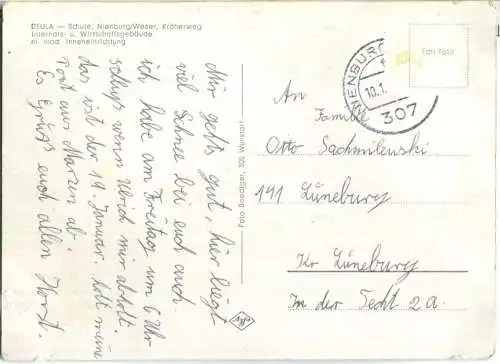 DEULA — Schule, Nienburg/Weser, Kräherweg
Internats- u. Wirtschaftsgebäude
m. mod. Inneneinrichtung
Mir gehts gut, hier liegt
viel Schnee bei euch auch
ich habe am Freitag um 6 Uhr
schluss wenn Ulrich mir abholt
das ist der 14. Januar. holt meine
Post aus Marzen ab.
Es Grüßt euch allen Horst.
Foto Boedtger, 305 Wunstorf
Agfa
NIENBURG
10.1.
307
Echt Foto
An
Familie
Otto Sachmilewski
141 Lüneburg
Kr Lüneburg
In der Techt 2a.